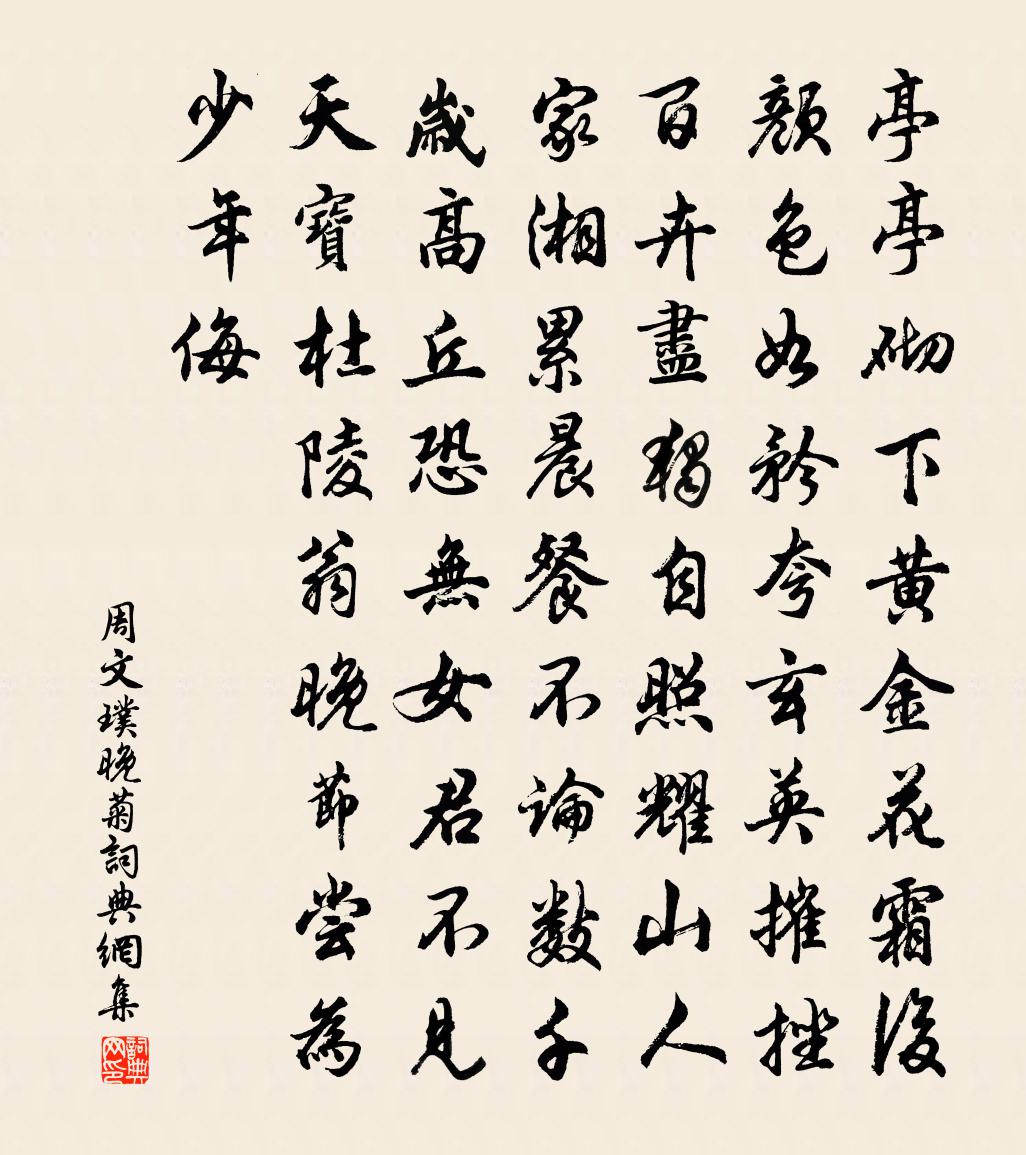 亭亭砌下黃金花霜後
顏色如矜夸玄英摧挫
百卉盡獨自照耀山人
家湘累晨餐不論數千
歲高丘恐無女君不見
天寶杜陵翁晚節尝為
少年侮
周文璞晚菊詞典網集
詞典网印